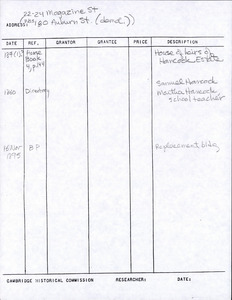 22-24 Magazine St
ADDRESS: 180 Auburn St. (demol.)
DATE REF. GRANTOR GRANTEE PRICE DESCRIPTION
House of heirs of
Book Hancock Estate
Samuel Hancock
1860 Directory Martha Hancock
school teacher
16 Nov B.P. Replacement bldg
1895
CAMBRIDGE HISTORICAL COMMISSION RESEARCHER: DATE: